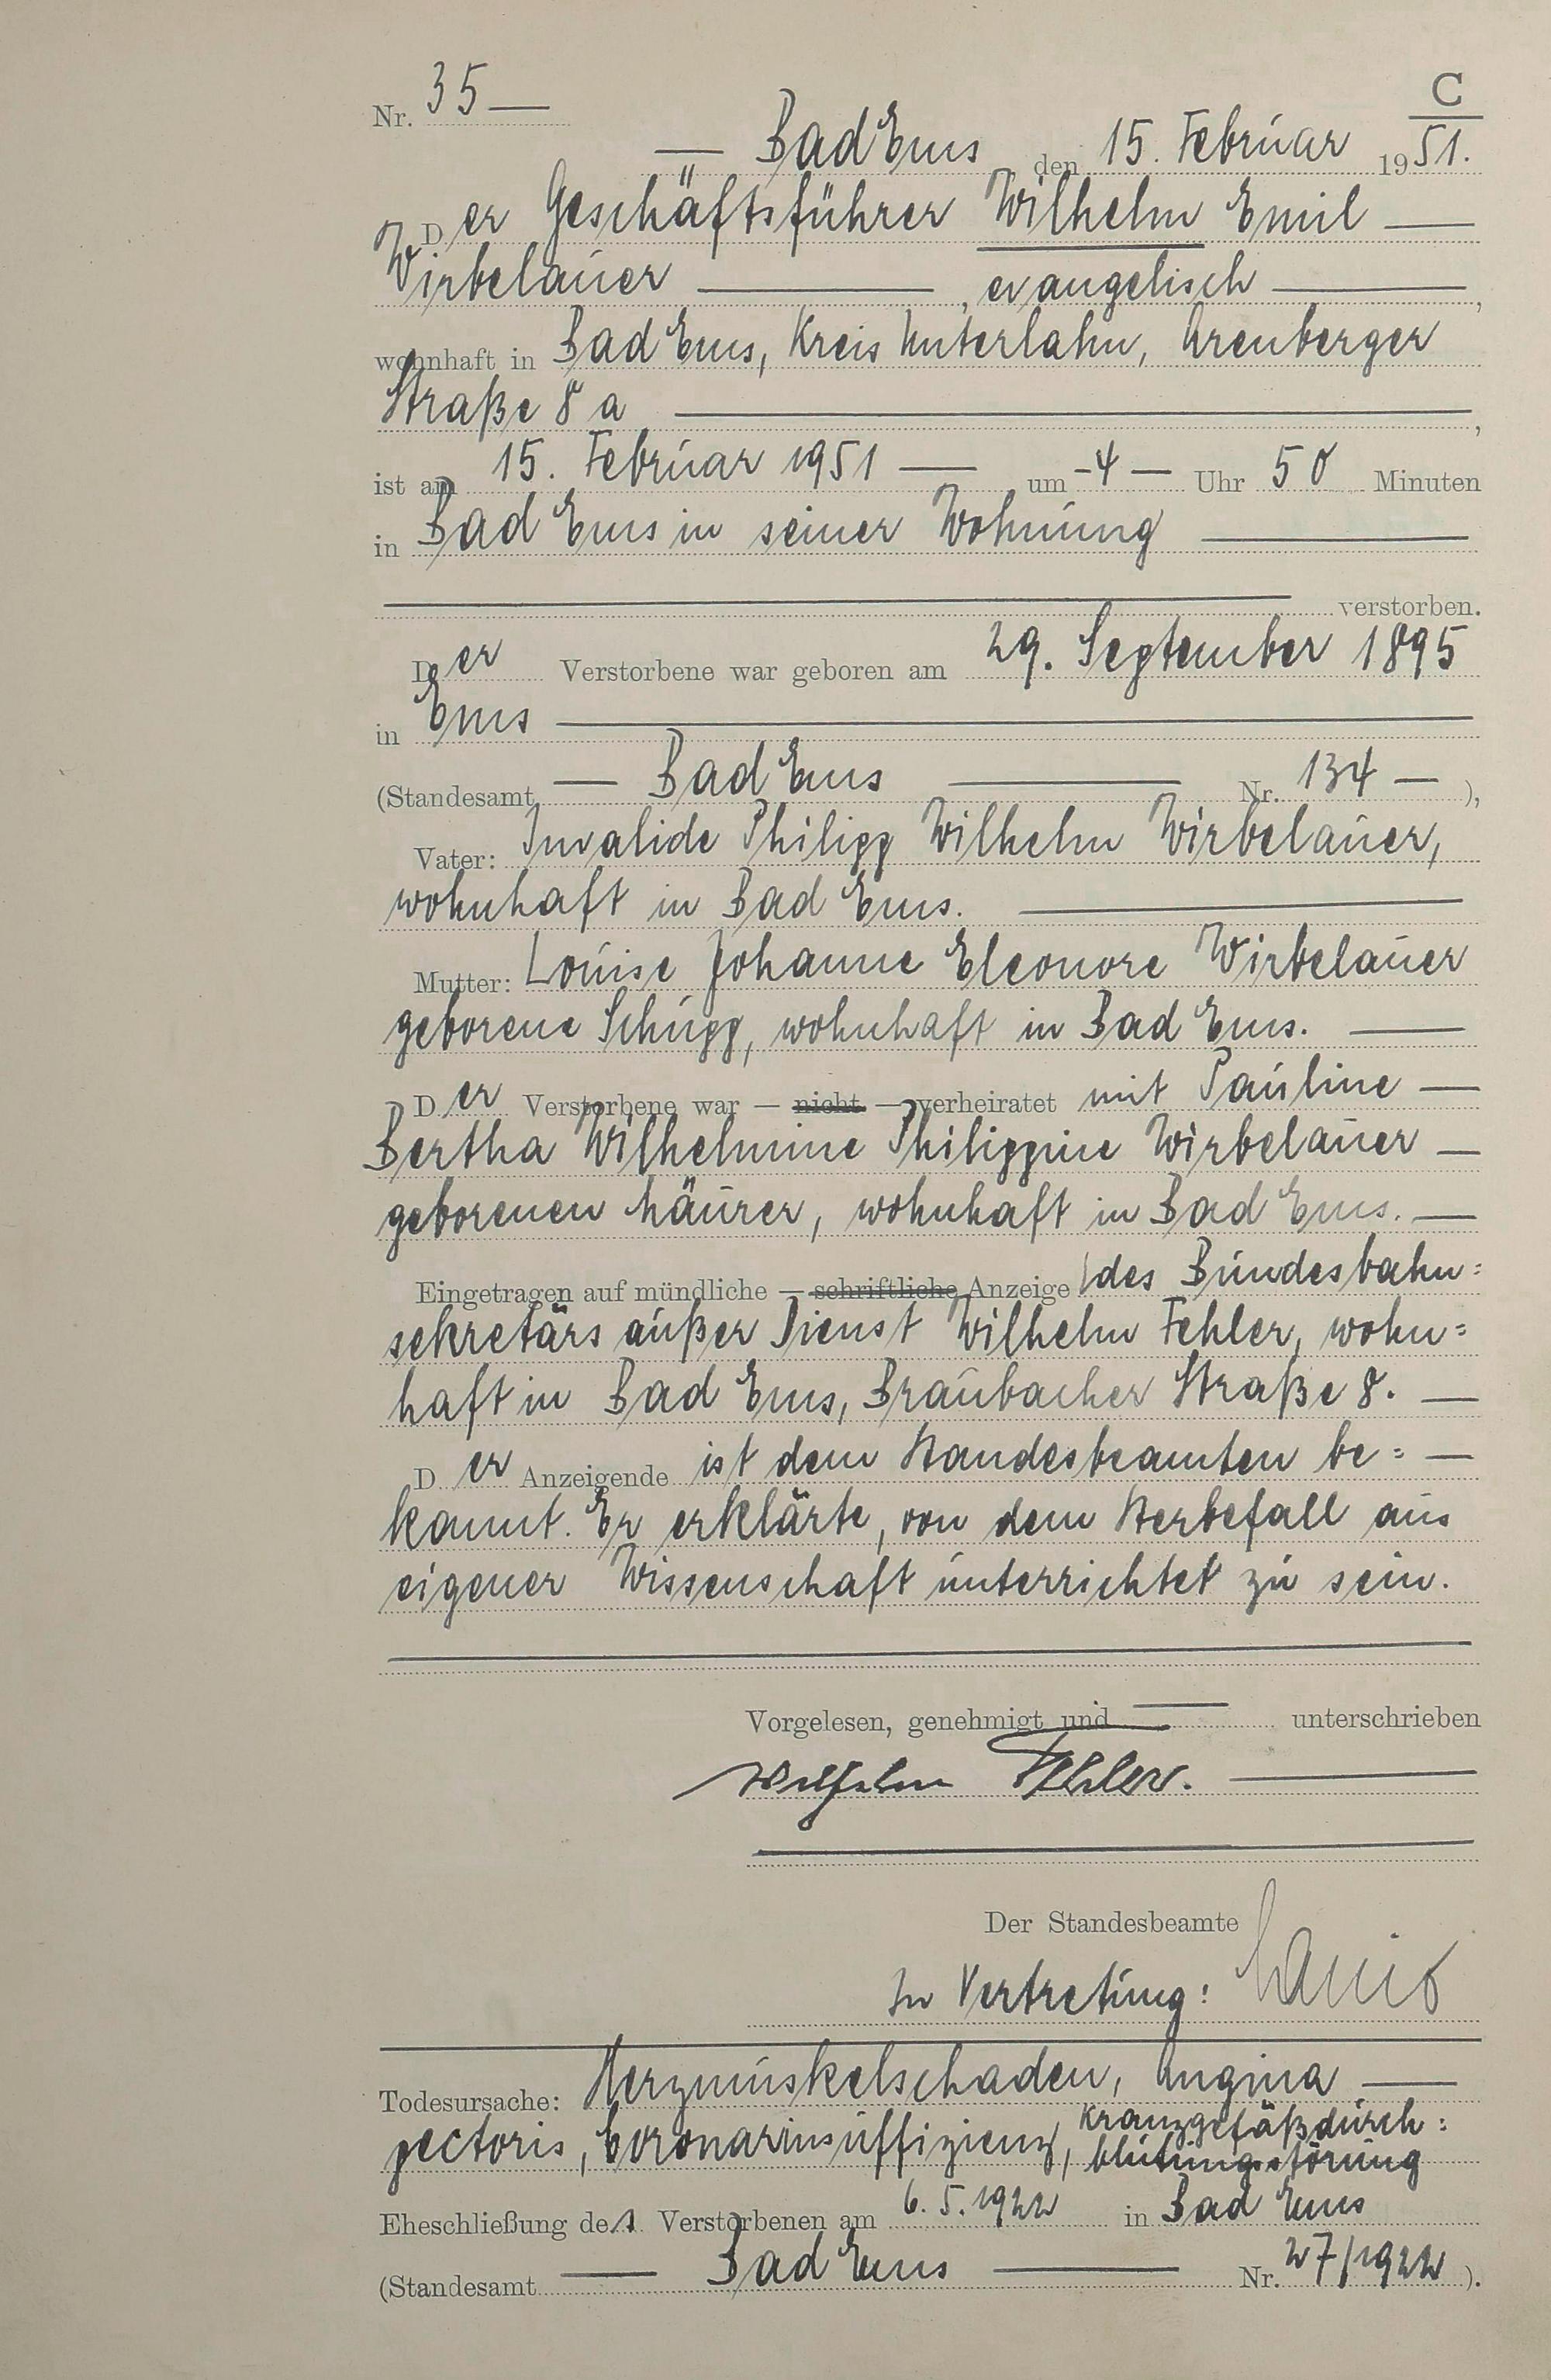 Nr. 35 —
C
— Bad Ems den 15. Februar 1951.
Der Geschäftsführer Wilhelm Emil —
Wirbelauer —, evangelisch —,
wohnhaft in Bad Ems, Kreis Unterlahn, Arenberger
Straße 8 a —,
ist am 15. Februar 1951 — um - 4 — Uhr 50 Minuten
in Bad Ems in seiner Wohnung —
— verstorben.
Der Verstorbene war geboren am 29. September 1895
in Ems —
(Standesamt — Bad Ems — Nr. 134 — ),
Vater: Invalide Philipp Wilhelm Wirbelauer,
wohnhaft in Bad Ems. —
Mutter: Louise Johanne Eleonore Wirbelauer
geborene Schupp, wohnhaft in Bad Ems. —
Der Verstorbene war — nicht — verheiratet mit Pauline —
Bertha Wilhelmine Philippine Wirbelauer —
geborenen Häurer, wohnhaft in Bad Ems. —
Eingetragen auf mündliche — schriftliche Anzeige des Bundesbahn=
sekretärs außer Dienst Wilhelm Fehler, wohn=
haft in Bad Ems, Braubacher Straße 8. —
Der Anzeigende ist dem Standesbeamten be= —
kannt. Er erklärte, von dem Sterbefall aus
eigener Wissenschaft unterrichtet zu sein.
Vorgelesen, genehmigt und — unterschrieben
Wilhelm Fehler. —
Der Standesbeamte
In Vertretung:
Todesursache: Herzmuskelschaden, Angina —
pectoris, Coronarinsuffizienz, Kranzgefäßdurch=
blutungsstörung
Eheschließung des Verstorbenen am 6. 5. 1922 in Bad Ems
(Standesamt — Bad Ems — Nr. 27/1922 ).